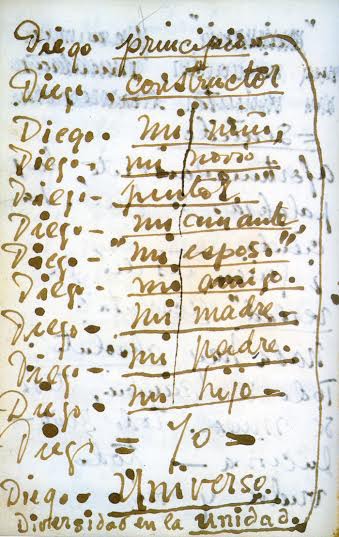 Diego principio
Diego constructor
Diego. mi niño,
Diego - mi novio
Diego - pintor.
Diego - mi amante
Diego - "mi esposo"
Diego - mi amigo.
Diego - mi madre -
Diego - mi padre.
Diego - mi hijo -
Diego = Yo =
Diego - Universo.
Diversidad en la unidad.